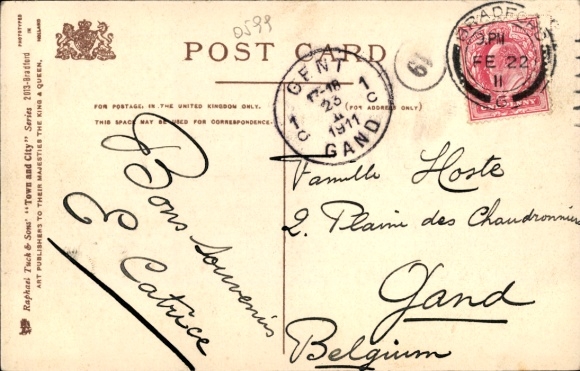 0599
POST CARD
FOR POSTAGE, IN THE UNITED KINGDOM ONLY.
(FOR ADDRESS ONLY)
THIS SPACE MAY BE USED FOR CORRESPONDENCE.
PHOTOTYPED IN HOLLAND
Raphael Tuck & Sons' "Town and City" Series 2013-Bradford
ART PUBLISHERS TO THEIR MAJESTIES THE KING & QUEEN.
GENT
17-18
23
II
1911
GAND
1C
1C
61
BRADFORD
3.PM
FE 22
11
PENNY
Bons souvenirs
E Catrice
Famille Hoste
2. Plaine des Chaudronniers
Gand
Belgium